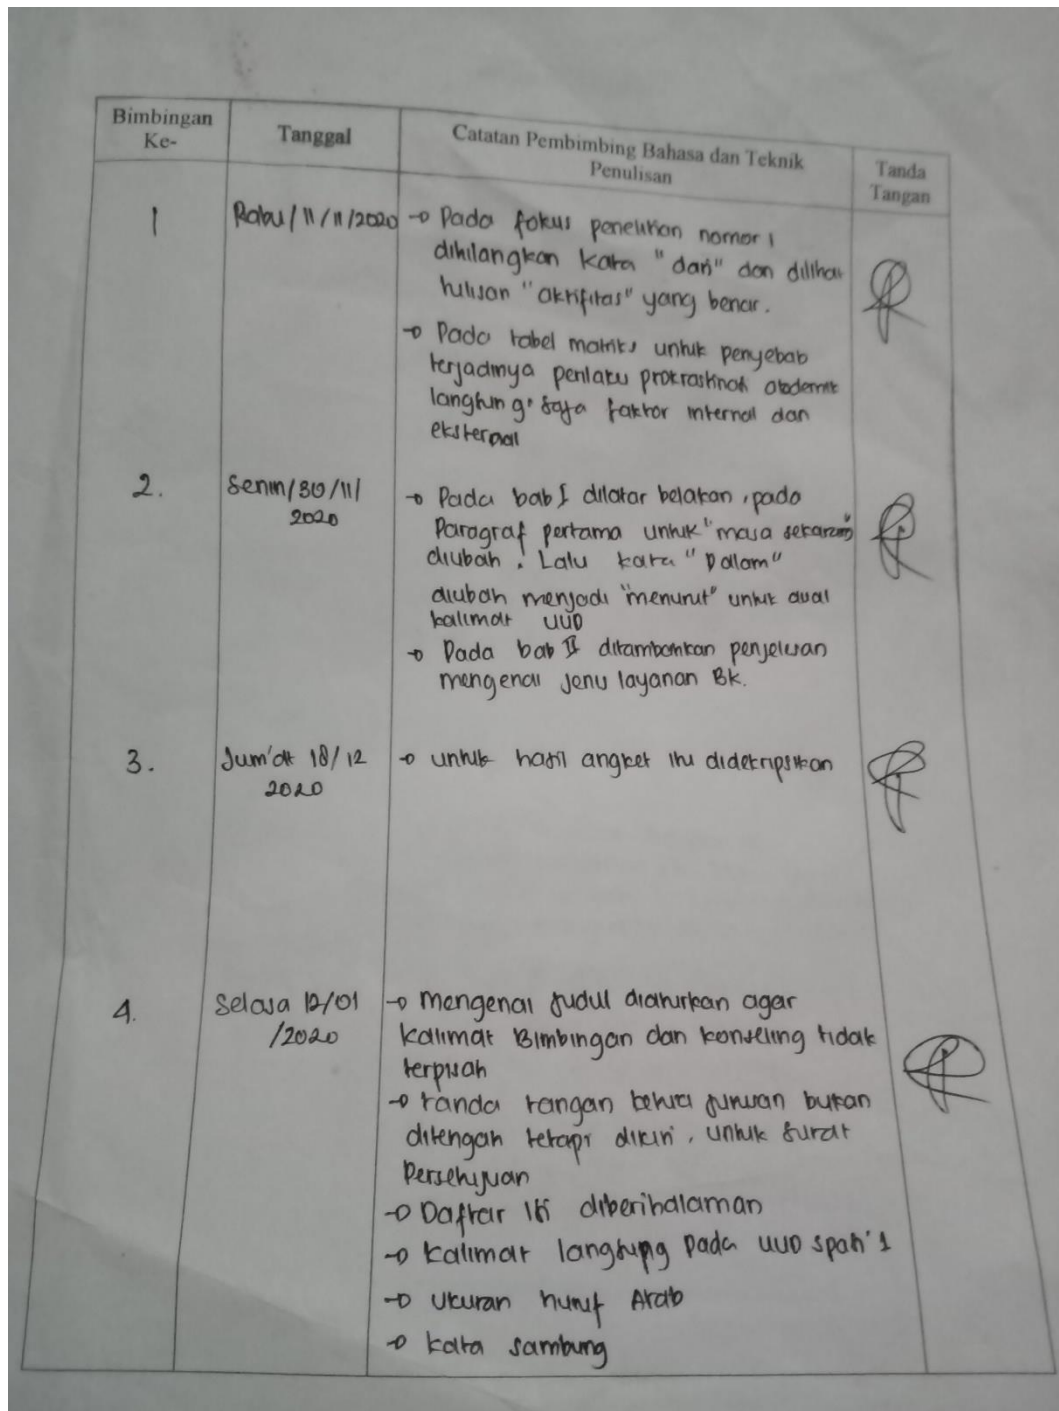 Bimbingan
Ke-
Tanggal
Catatan Pembimbing Bahasa dan Teknik
Penulisan
Tanda
Tangan
1
Rabu/11/11/2020
→ Pada fokus penelitian nomor 1
dihilangkan kata "dari" dan dilihat
tulisan "aktifitas" yang benar.
→ Pada tabel matriks untuk penyebab
terjadinya perilaku prokrastinasi akademik
langsung saja faktor internal dan
eksternal
2.
Senin/30/11/
2020
→ Pada bab I dilatar belakan, pada
Paragraf pertama untuk "masa sekarang"
diubah. Lalu kata "Dallam"
diubah menjadi "menurut" untuk awal
kalimat UUD
→ Pada bab II ditambahkan penjelasan
mengenai jenis layanan BK.
3.
Jum'at 18/12
2020
→ untuk hasil angket itu dideskripsikan
4.
Selasa 12/01
/2020
→ mengenai judul diaturkan agar
kalimat Bimbingan dan konseling tidak
terpisah
→ tanda tangan ketua jurusan bukan
ditengah tetapi dikiri, untuk surat
Persetujuan
→ Daftar isi diberihalaman
→ kalimat langsung pada UUD spasi 1
→ Ukuran huruf Arab
→ kata sambung